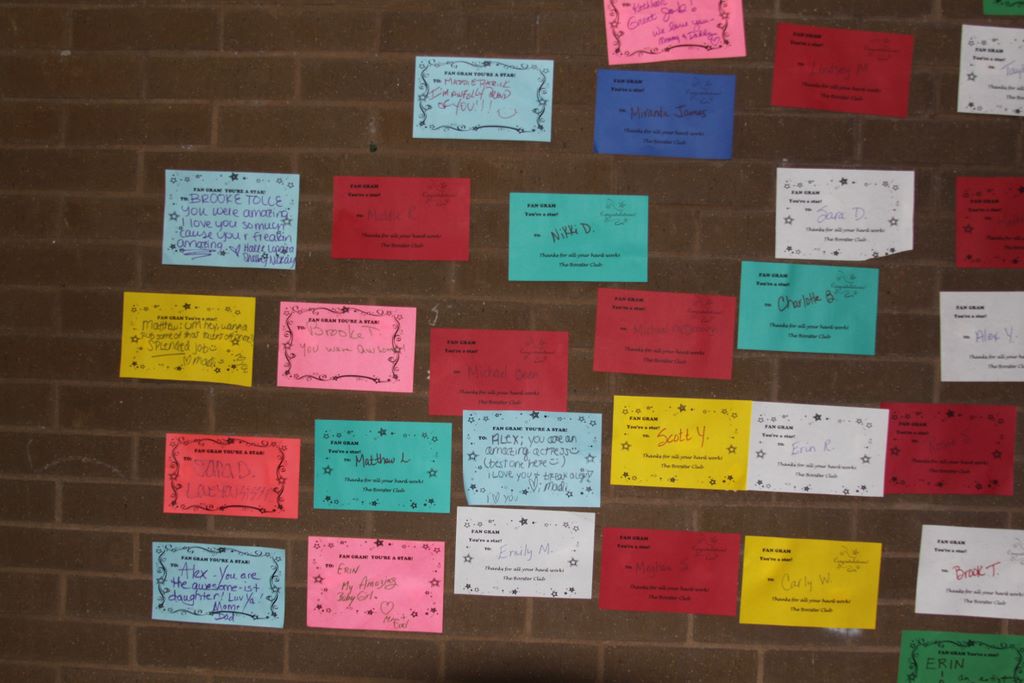 Great Job!
We love you
Mommy & Daddy
FAN GRAM YOU'RE A STAR!
TO:
I'M AWFULLY PROUD
OF YOU!!!
FAN GRAM
You're a star!
Congratulations!
TO: Miranda James
Thanks for all your hard work!
The Booster Club
FAN GRAM
You're a star!
Congratulations!
TO: Lindsey M
Thanks for all your hard work!
The Booster Club
FAN GRAM! YOU'RE A STAR!
TO: BROOKE TOLLE
You were amazing
I love you so much
'cause you r freakin
amazing
FAN GRAM
You're a star!
Congratulations!
TO: Mattie R.
Thanks for all your hard work!
The Booster Club
FAN GRAM
You're a star!
Congratulations!
TO: Nikki D.
Thanks for all your hard work!
The Booster Club
FAN GRAM
You're a star!
TO: Sara D.
Thanks for all your hard work!
The Booster Club
FAN GRAM You're a star!
Matthew: um hey, wanna
SPLENDID job
♡ madi
FAN GRAM YOU'RE A STAR!
TO: Brooke T
You were awesome
FAN GRAM
You're a star!
TO: Michael Deen
Thanks for all your hard work!
The Booster Club
FAN GRAM
You're a star!
TO: Michael
Thanks for all your hard work!
The Booster Club
FAN GRAM
You're a star!
Congratulations!
TO: Charlotte B.
Thanks for all your hard work!
The Booster Club
FAN GRAM
You're a star!
TO: Alex Y.
Thanks for all your hard
The Booster
FAN GRAM YOU'RE A STAR!
TO: SARA D.
FAN GRAM
You're a star!
TO: Matthew L
Thanks for all your hard work!
The Booster Club
FAN GRAM! YOU'RE A STAR!
TO: ALEX; you are an
amazing actress
(best one here ☺)
I love you & break a leg!
♡ madi
i ♡ you
FAN GRAM
You're a star!
TO: Scott Y.
Thanks for all your hard work!
The Booster Club
FAN GRAM
You're a star!
TO: Erin R.
Thanks for all your hard work!
The Booster Club
FAN GRAM
You're a star!
Thanks for all your hard work!
The Booster Club
FAN GRAM YOU'RE A STAR!
TO: Alex - You are
the awesome-ist
daughter! Luv Ya!
Mom &
Dad
FAN GRAM! YOU'RE A STAR!
TO: ERIN
My Amazing
Baby Girl.
FAN GRAM
You're a star!
TO: Emily M.
Thanks for all your hard work!
The Booster Club
FAN GRAM
You're a star!
Congratulations!
TO: Meghan S
Thanks for all your hard work!
The Booster Club
FAN GRAM
You're a star!
Congratulations!
TO: Carly W.
Thanks for all your hard work!
The Booster Club
FAN GRAM
You're a star!
TO: Brook T.
Thanks for all your hard work!
The Booster Club
FAN GRAM You're a star!
ERIN